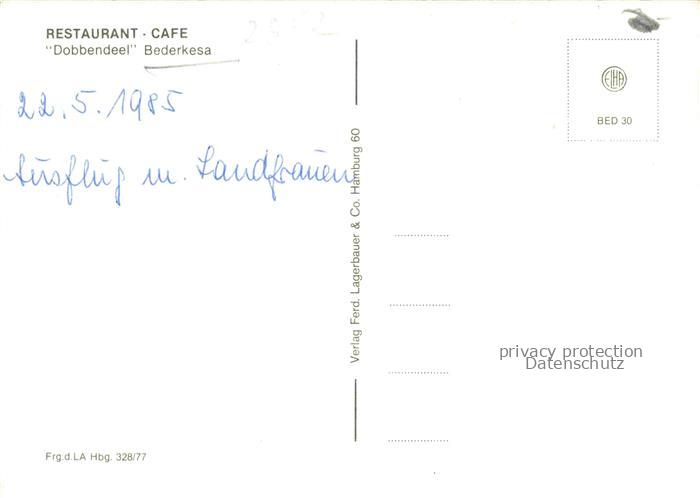 RESTAURANT · CAFE
"Dobbendeel" Bederkesa
22.5.1985
Ausflug m. Landfrauen
Verlag Ferd. Lagerbauer & Co. Hamburg 60
ELHA
BED 30
privacy protection
Datenschutz
Frg.d.LA Hbg. 328/77